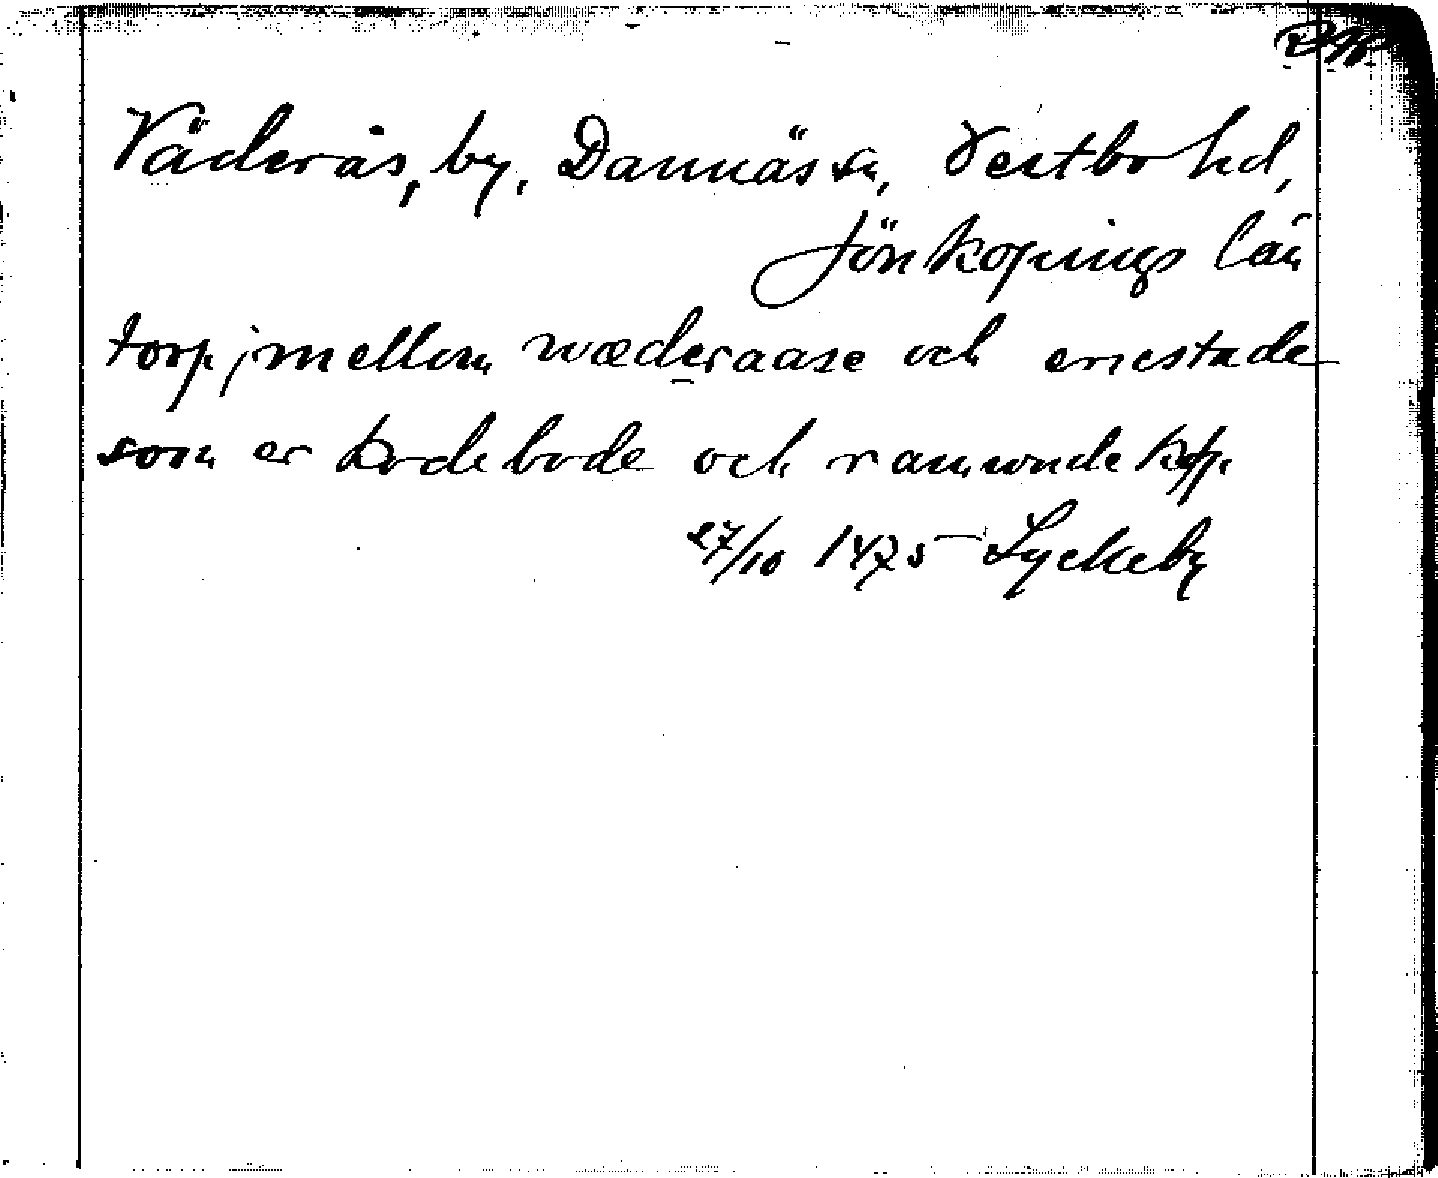 Väderås, by, Dannäs sn, Vestbo hd,
Jönköpings län
torp j mellom wæderaase och ericstade
som er bodebode och ramunde kp.
27/10 1475 Lyckeby